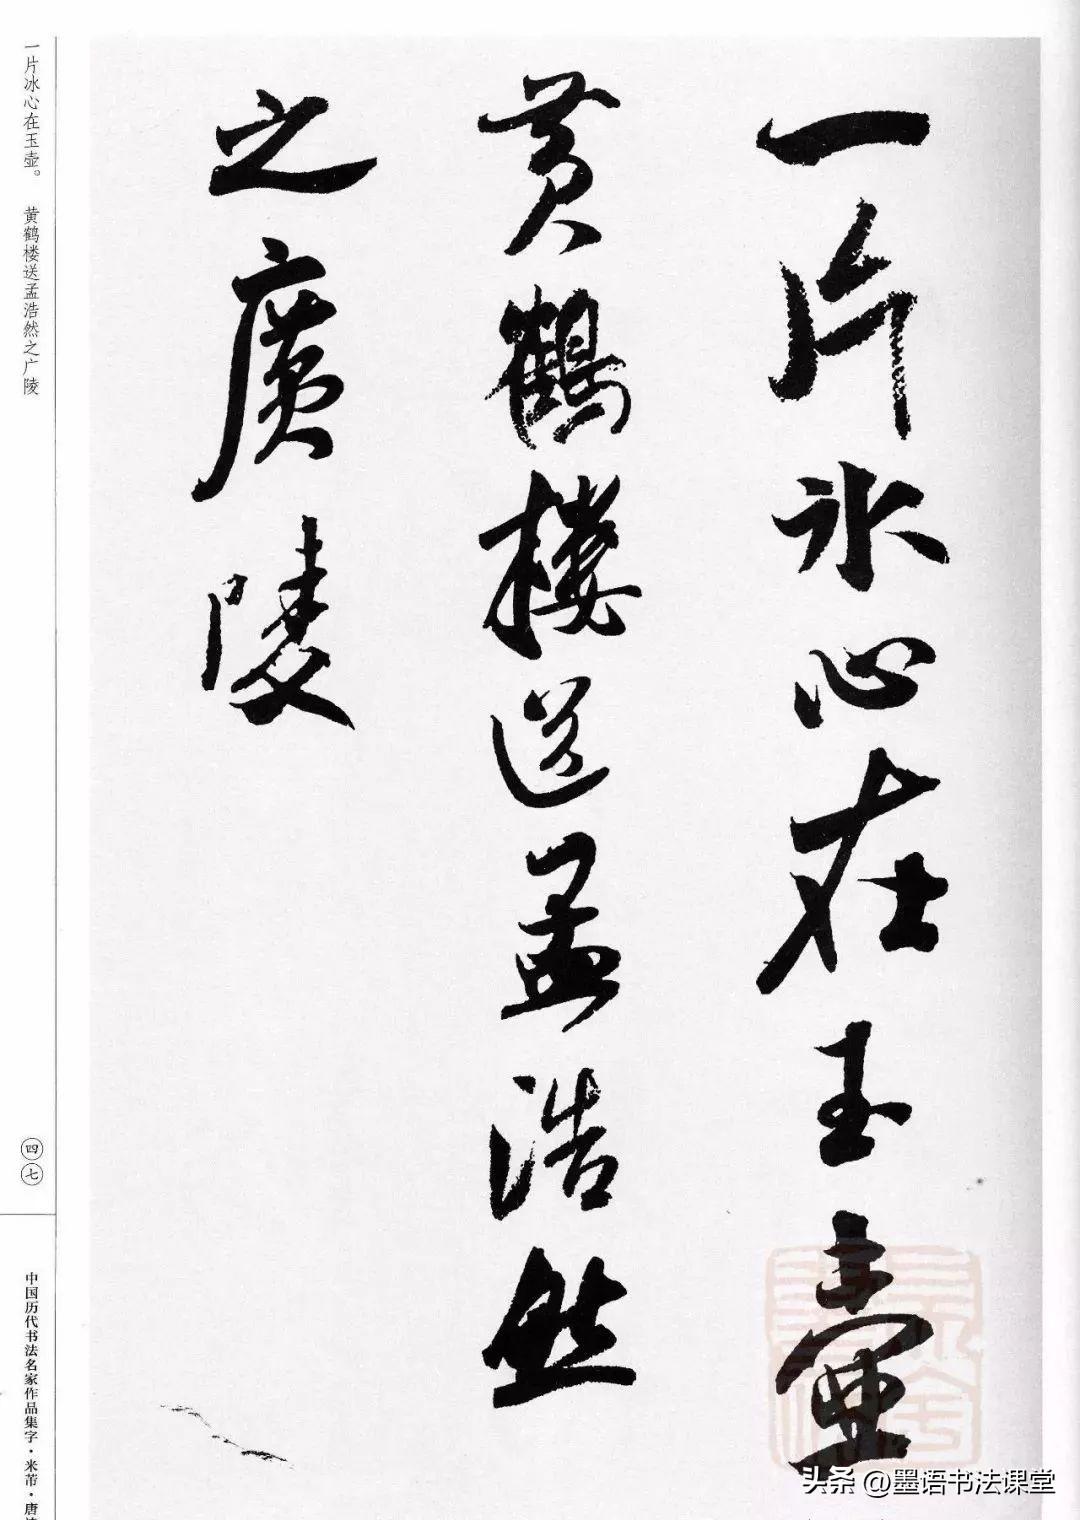 一片冰心在玉壶
黄鹤樓送孟浩然
之廣陵
一片冰心在玉壶。 黄鹤楼送孟浩然之广陵
四七
中国历代书法名家作品集字·米芾·唐
头条 @墨语书法课堂